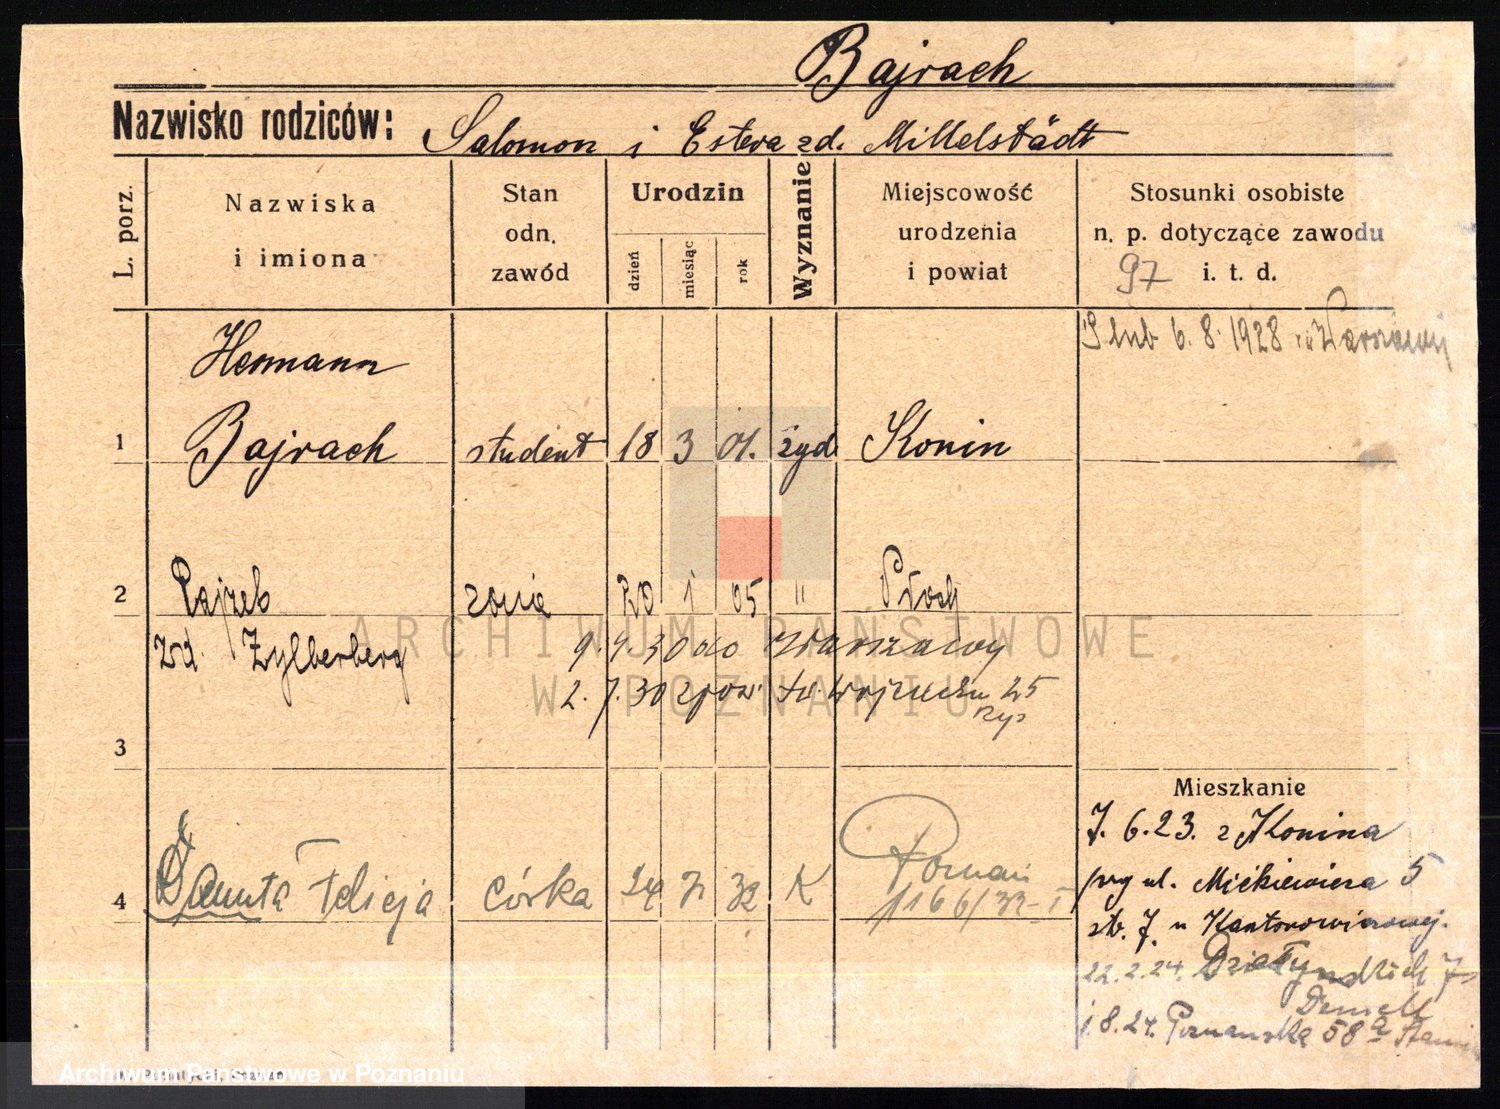 Bajrach
Nazwisko rodziców: Salomon i Estera zd. Mittelstädt
L. porz.
Nazwiska
i imiona
Stan
odn.
zawód
Urodzin
dzień
miesiąc
rok
Wyznanie
Miejscowość
urodzenia
i powiat
Stosunki osobiste
n. p. dotyczące zawodu
97 i. t. d.
Ślub 6.8.1928 Warszawy
Hermann
1 Bajrach student 18 3 01. żyd Konin
2 Rajzeb żona 20 1 05 " Płock
zd. Zylberberg 9.4.30 do Warszawy
2.7.30 zpow. św. Wojciecha 25
3
Mieszkanie
7.6.23. z Konina
przy ul. Mickiewicza 5
4 Danuta Felicja córka 24 7 32 K Poznań
1166/32-I
stb. 7. u Kantorowiczowej.
22.2.24. Działyńskich 7
1.8.24. Poznańska 58a
ARCHIWUM PAŃSTWOWE
W POZNANIU
Archiwum Państwowe w Poznaniu